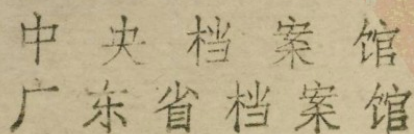 中央档案馆
广东省档案馆